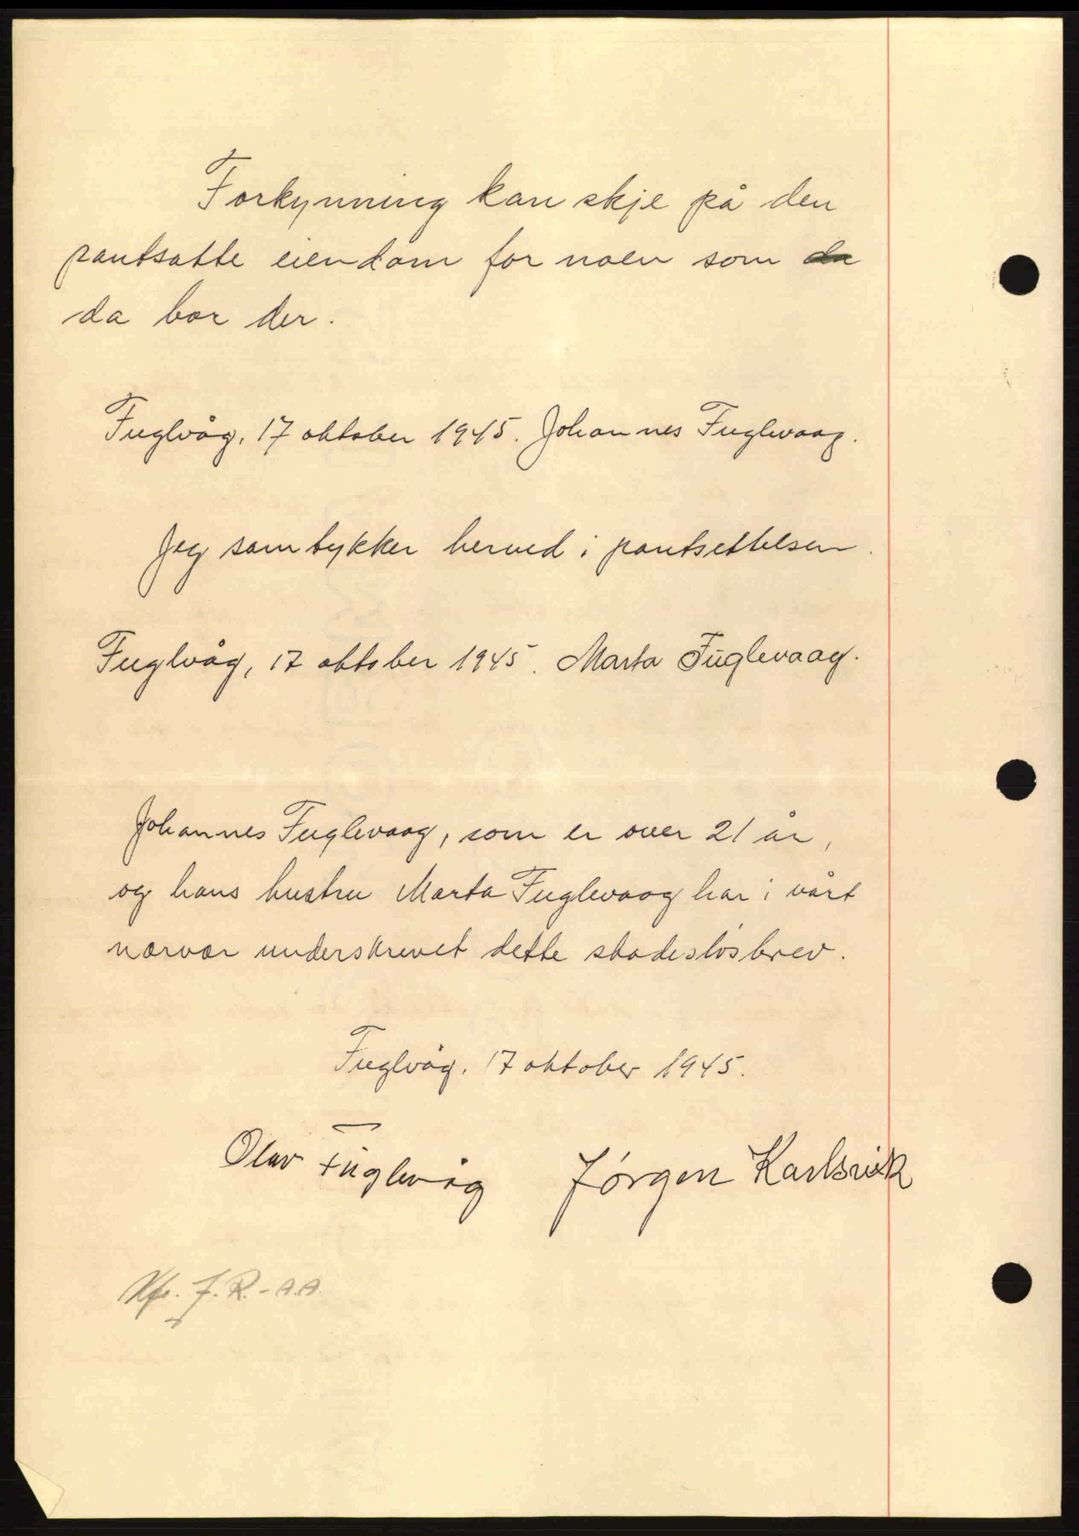 Forkynning kan skje på den
pantsatte eiendom for noen som da
da bor der.
Fuglvåg, 17 oktober 1945. Johannes Fuglevaag.
Jeg samtykker herved i pantsettelsen.
Fuglvåg, 17 oktober 1945. Marta Fuglevaag.
Johannes Fuglevaag, som er over 21 år,
og hans hustru Marta Fuglevaag har i vårt
nærvær underskrevet dette skadesløsbrev.
Fuglvåg, 17 oktober 1945.
Olav Fuglevåg Jørgen Karlsvik
J.R.-A.A.